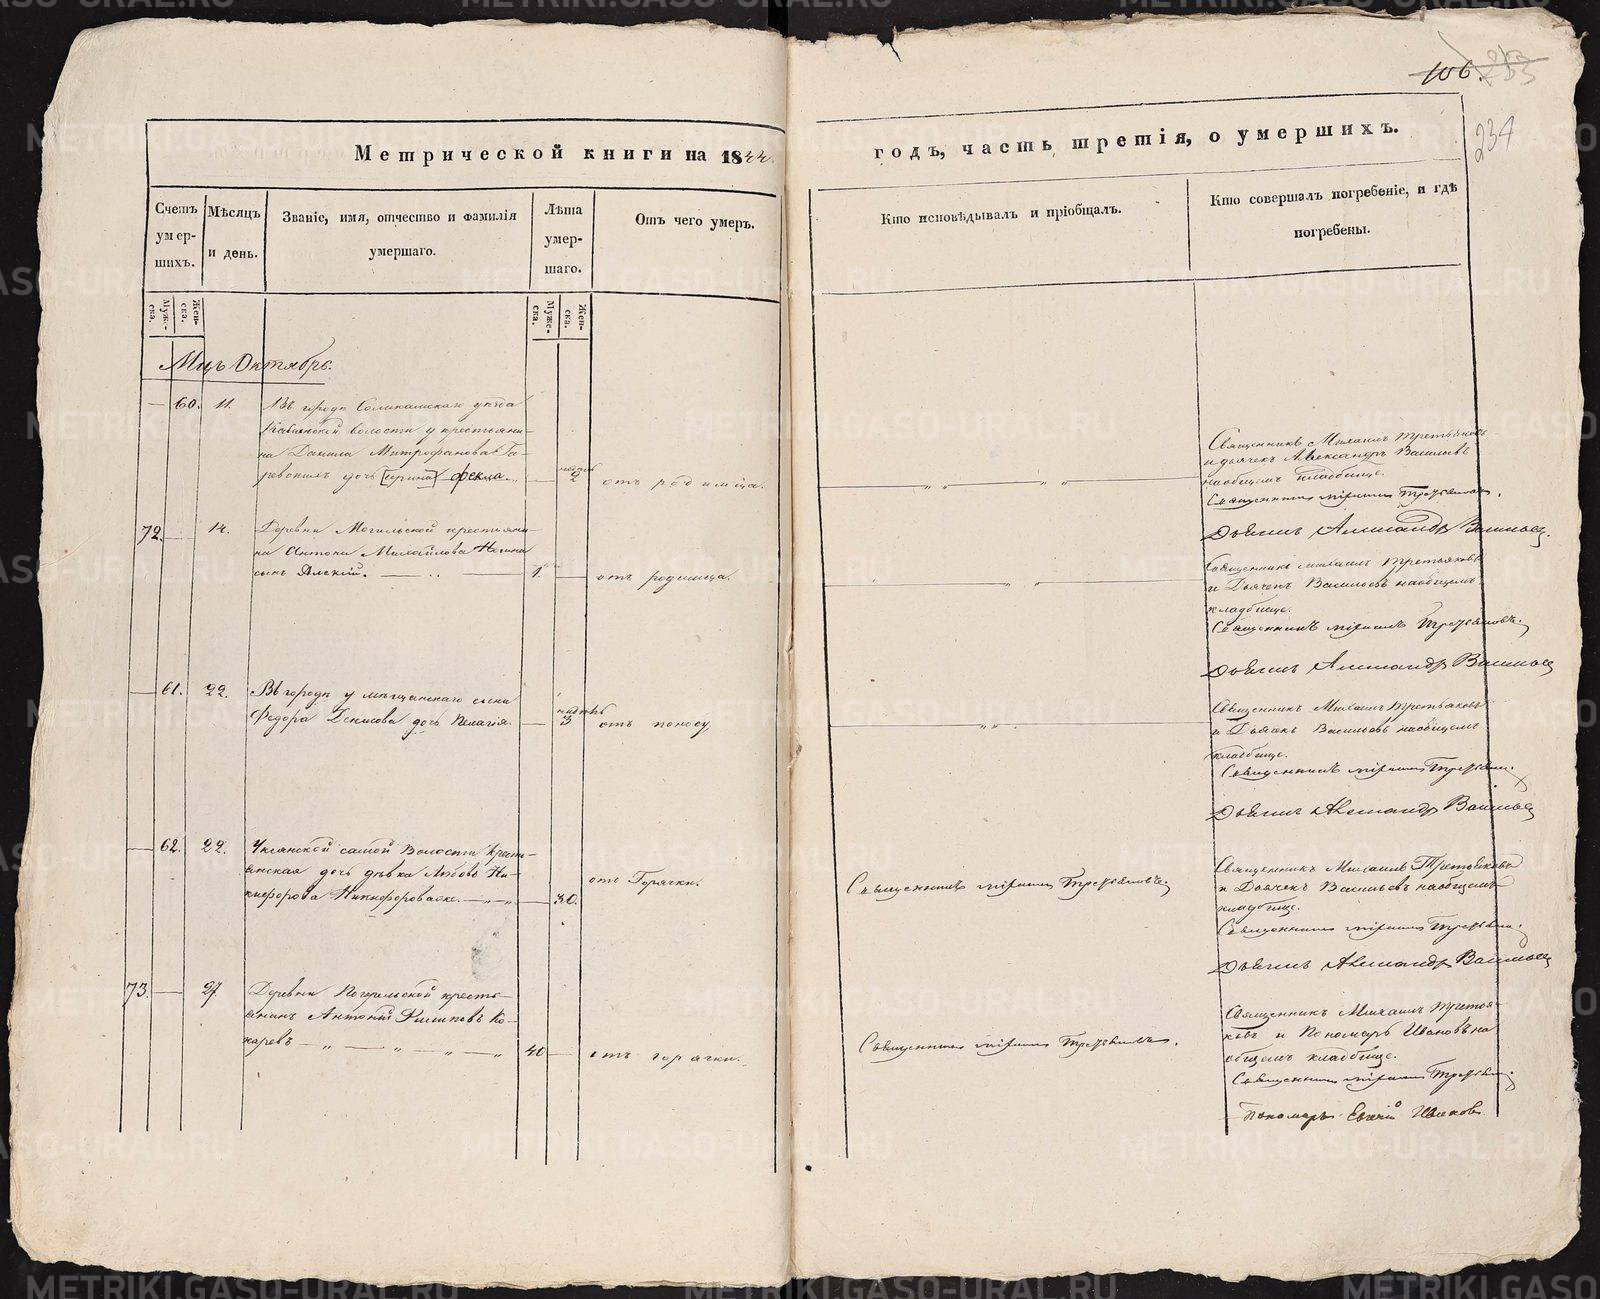 106. 253
234
Метрической книги на 1844
годъ, часть третія, о умершихъ.
Счетъ умершихъ.
Мѣсяцъ и день.
Званіе, имя, отчество и фамилія
умершаго.
Лѣта умершаго.
Отъ чего умеръ.
Кто исповѣдывалъ и пріобщалъ.
Кто совершалъ погребеніе, и гдѣ
погребены.
Мужеска.
Женска.
Мужеска.
Женска.
Мцъ Октябрь.
60. 11. Въ городѣ Соликамскаго уѣзда
волости у крестьяни-
на Данила Митрофанова
дочь Фекла
недѣль
2
отъ родимца.
Священникъ Михаилъ Третьяковъ
и дьячекъ Александръ Васильевъ
наобщемъ кладбище.
Священникъ Михаилъ Третьяковъ.
Дьячекъ Александръ Васильевъ.
72. 14. Деревни крестьяни-
на Антона Михайлова
сынъ
1.
отъ родимца.
Священникъ Михаилъ Третьяковъ
и Дьячекъ Васильевъ наобщемъ
кладбище.
Священникъ Михаилъ Третьяковъ.
Дьячекъ Александръ Васильевъ
61. 22. Въ городѣ у мѣщанскаго сына
Федора Денисова дочь Пелагія.
3
отъ поносу
Священникъ Михаилъ Третьяковъ
и Дьячекъ Васильевъ наобщемъ
кладбище.
Священникъ Михаилъ Третьяковъ.
Дьячекъ Александръ Васильевъ
62. 22. самой Волости Кресть-
янская дочь дѣвка Любовь Ни-
кифорова
30.
отъ Горячки.
Священникъ Михаилъ Третьяковъ
Священникъ Михаилъ Третьяковъ
и Дьячекъ Васильевъ наобщемъ
кладбище.
Священникъ Михаилъ Третьяковъ.
Дьячекъ Александръ Васильевъ
73. 27. Деревни кресть-
янинъ Антоній Филиповъ
40
отъ горячки.
Священникъ Михаилъ Третьяковъ.
Священникъ Михаилъ Третья-
ковъ и Пономарь Ивановъ на
общемъ кладбище.
Священникъ Михаилъ Третьяковъ.
Пономарь Ивановъ
METRIKI.GASO-URAL.RU